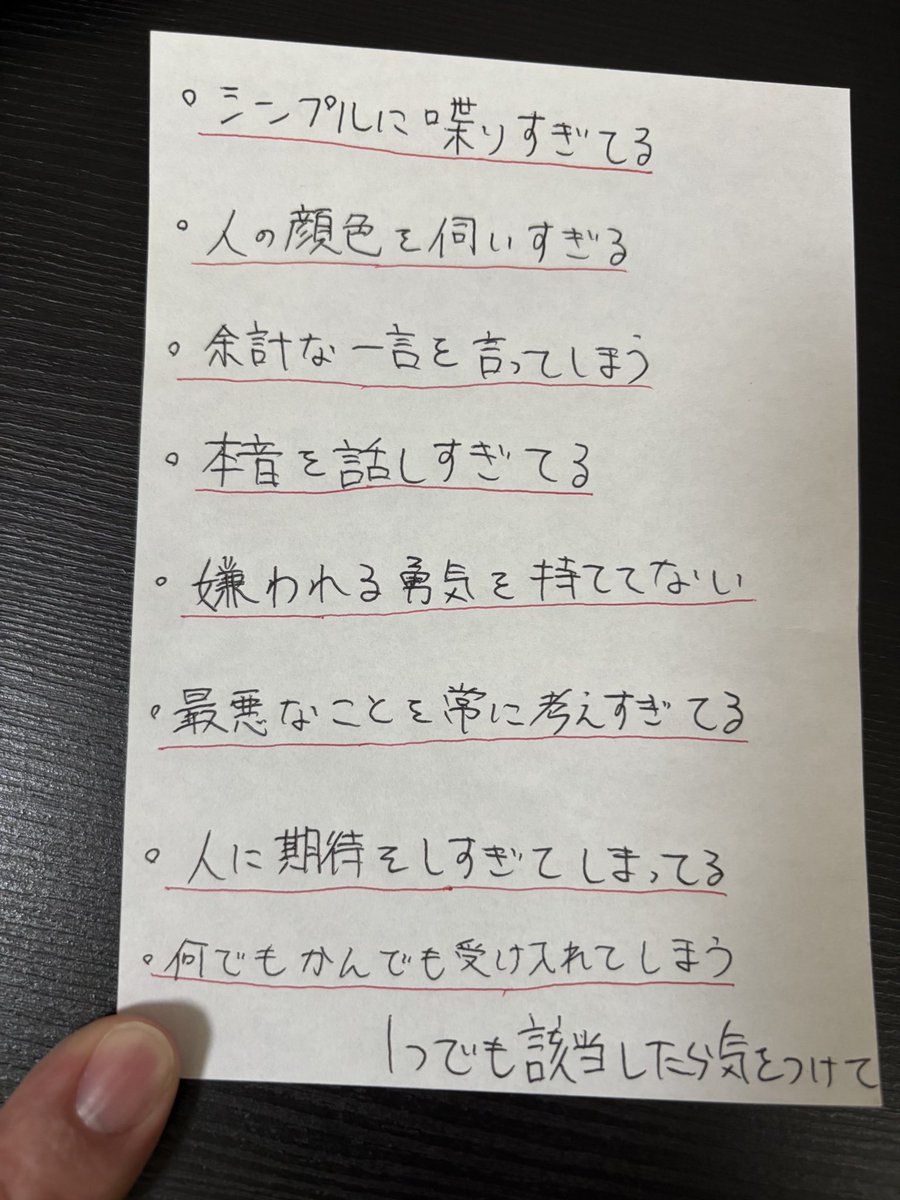 ○ シンプルに喋りすぎてる
○ 人の顔色を伺いすぎる
○ 余計な一言を言ってしまう
○ 本音を話しすぎてる
○ 嫌われる勇気を持ててない
○ 最悪なことを常に考えすぎてる
○ 人に期待をしすぎてしまってる
○ 何でもかんでも受け入れてしまう
1つでも該当したら気をつけて